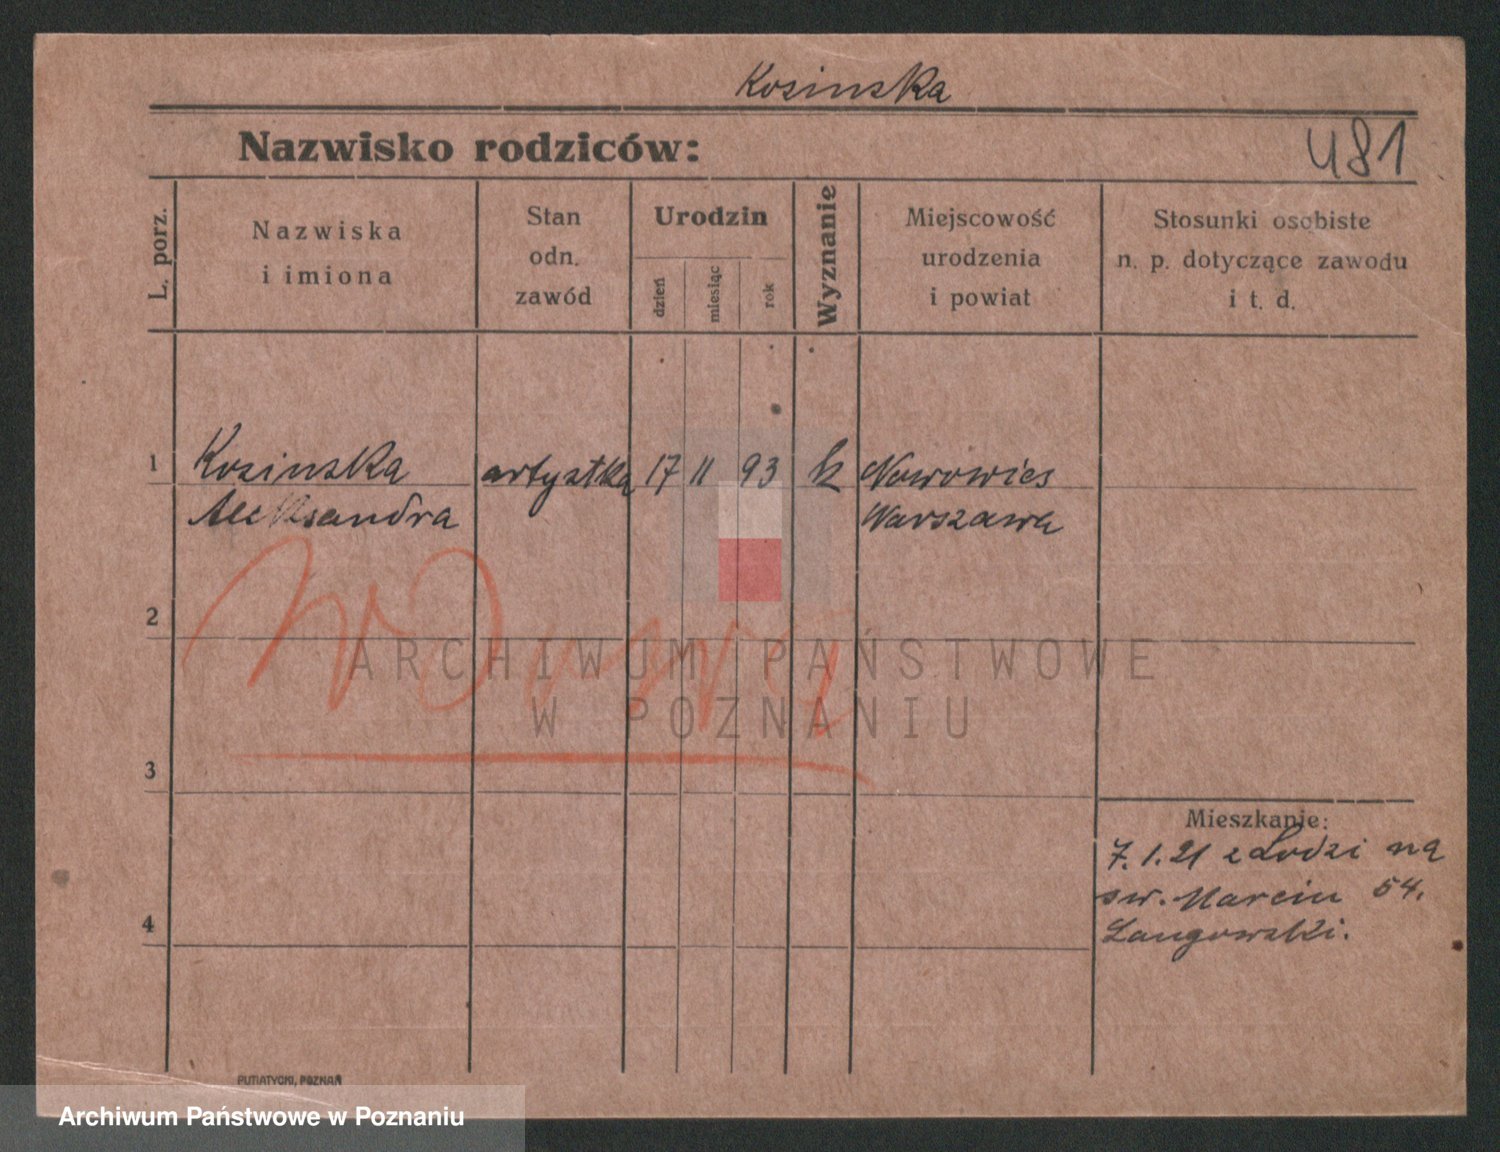 Kosinska
Nazwisko rodziców:
481
L. porz.
Nazwiska
i imiona
Stan
odn.
zawód
Urodzin
dzień
miesiąc
rok
Wyznanie
Miejscowość
urodzenia
i powiat
Stosunki osobiste
n. p. dotyczące zawodu
i t. d.
1
Kosinska artystka 17 11 93 k Nowowies
Aleksandra Warszawa
2
ARCHIWUM PAŃSTWOWE
W POZNANIU
3
Mieszkanie:
7.1.21 z Lodzi na
sw. Marcin 54.
4
Langowski.
PUTIATYCKI, POZNAŃ
Archiwum Państwowe w Poznaniu